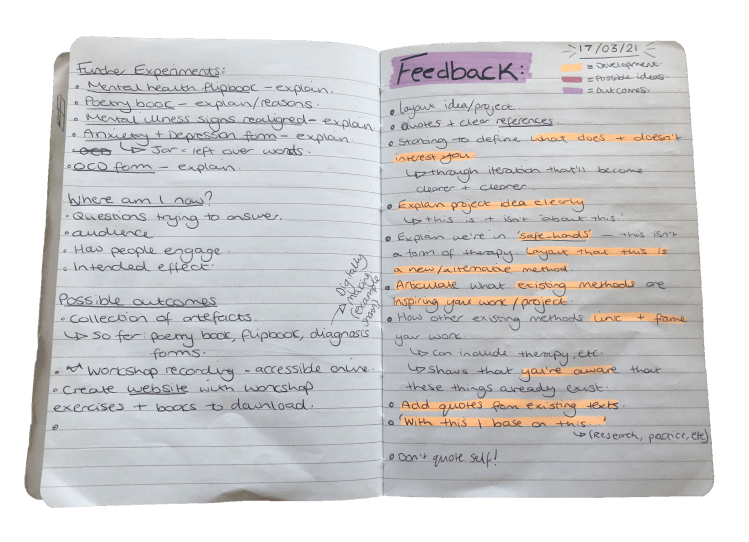 Further Experiments:
• Mental health flipbook - explain.
• Poetry book - explain/reasons.
• Mental illness signs realigned - explain
• Anxiety + Depression form - explain.
OCD ↳ Jar = left over words.
• OCD form - explain.
Where am I now?
• Questions trying to answer.
• audience
• How people engage.
• Intended effect.
Possible outcomes
• Collection of artefacts.
↳ So far: poetry book, flipbook, diagnosis
forms.
Digitally
making
(example
• Workshop recording - accessible online.
• Create website with workshop
exercises + books to download.
•
17/03/21
Feedback:
= Development
= Possible ideas
= Outcomes
• Layout idea/project.
• Quotes + clear references.
• Starting to define what does + doesn't
interest you
↳ through iteration that'll become
clearer + clearer.
• Explain project idea clearly
↳ 'this is + isn't about this.'
• Explain we're in 'safe-hands' - this isn't
a form of therapy. Layout that this is
a new/alternative method
• Articulate what existing methods are
inspiring your work/project
• How other existing methods link + frame
your work.
↳ can include therapy, etc.
↳ Shows that you're aware that
these things already exist.
• Add quotes from existing texts.
• 'With this I base on this...'
↳ (Research, practice, etc)
• Don't quote self!